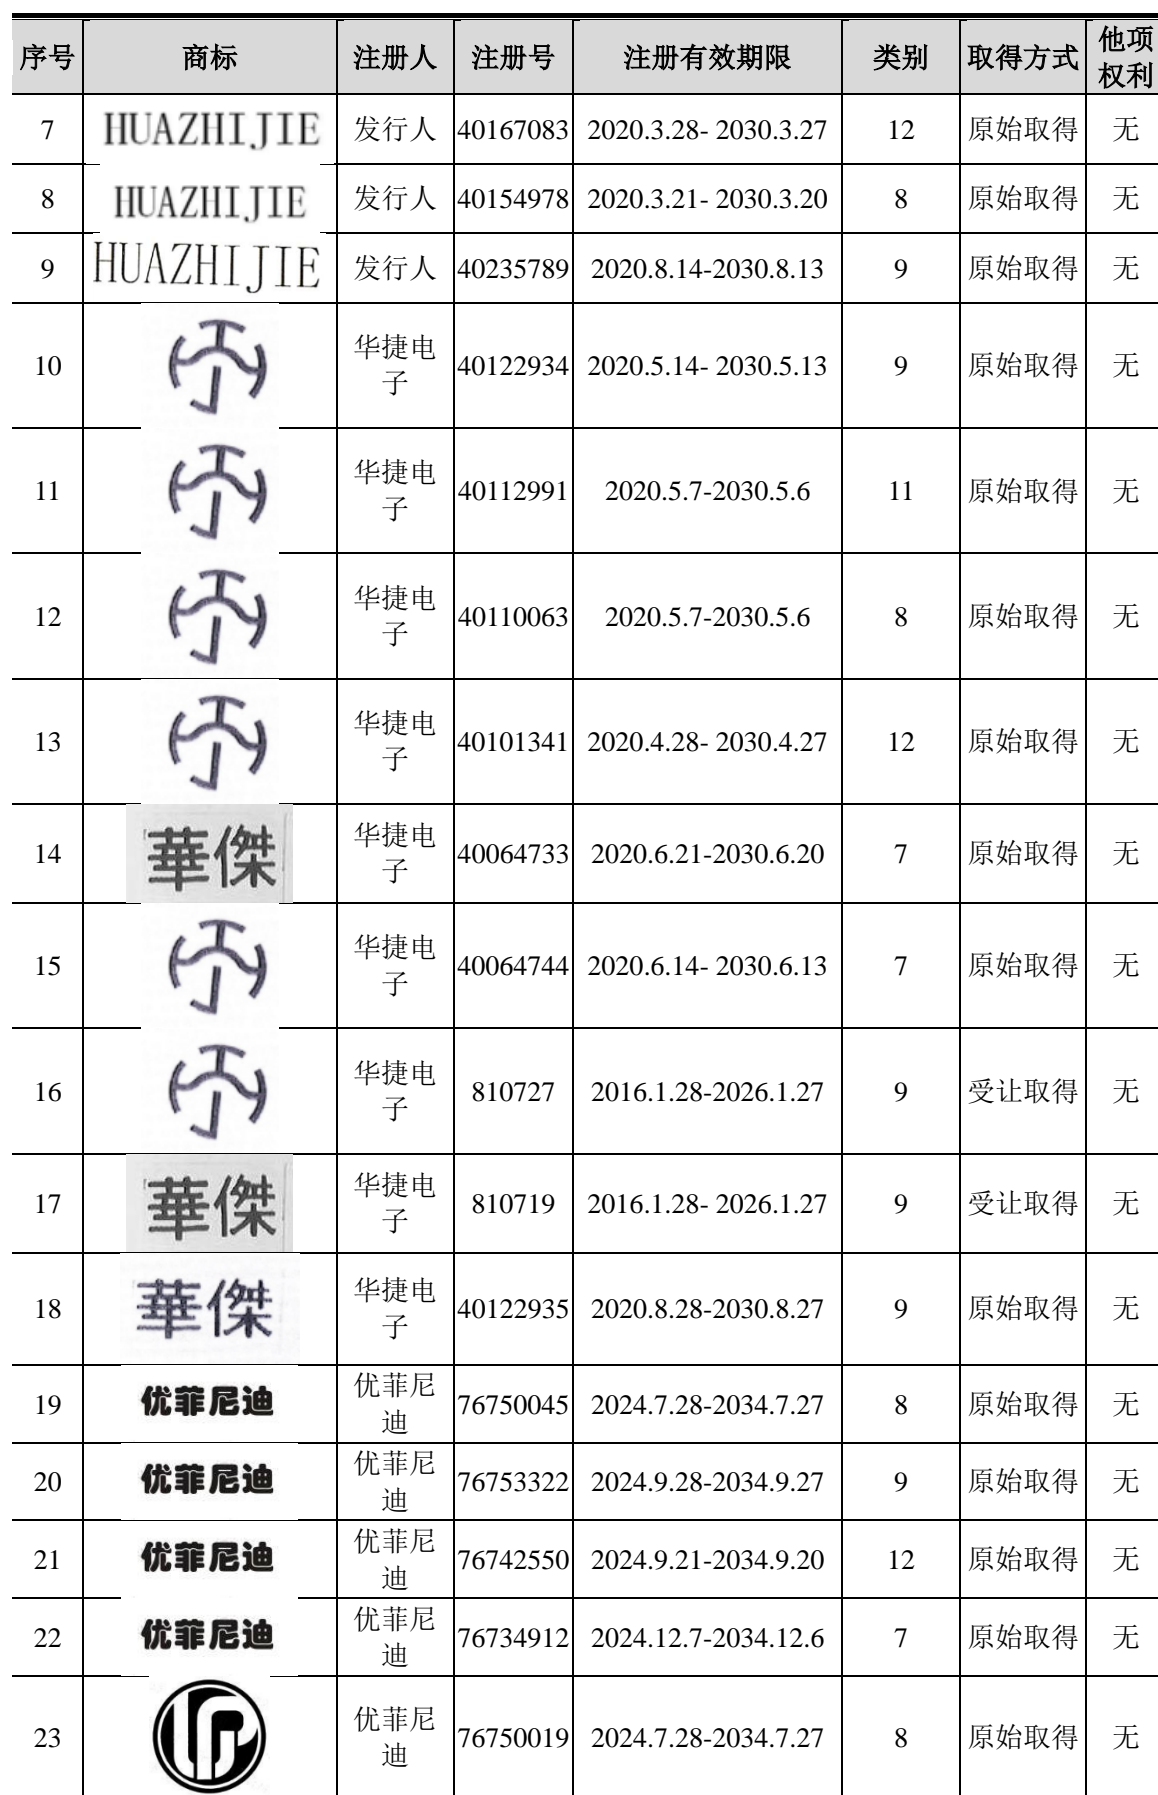 序号 商标 注册人 注册号 注册有效期限 类别 取得方式 他项权利
7 HUAZHIJIE 发行人 40167083 2020.3.28- 2030.3.27 12 原始取得 无
8 HUAZHIJIE 发行人 40154978 2020.3.21- 2030.3.20 8 原始取得 无
9 HUAZHIJIE 发行人 40235789 2020.8.14-2030.8.13 9 原始取得 无
10 华捷电子 40122934 2020.5.14- 2030.5.13 9 原始取得 无
11 华捷电子 40112991 2020.5.7-2030.5.6 11 原始取得 无
12 华捷电子 40110063 2020.5.7-2030.5.6 8 原始取得 无
13 华捷电子 40101341 2020.4.28- 2030.4.27 12 原始取得 无
14 華傑 华捷电子 40064733 2020.6.21-2030.6.20 7 原始取得 无
15 华捷电子 40064744 2020.6.14- 2030.6.13 7 原始取得 无
16 华捷电子 810727 2016.1.28-2026.1.27 9 受让取得 无
17 華傑 华捷电子 810719 2016.1.28- 2026.1.27 9 受让取得 无
18 華傑 华捷电子 40122935 2020.8.28-2030.8.27 9 原始取得 无
19 优菲尼迪 优菲尼迪 76750045 2024.7.28-2034.7.27 8 原始取得 无
20 优菲尼迪 优菲尼迪 76753322 2024.9.28-2034.9.27 9 原始取得 无
21 优菲尼迪 优菲尼迪 76742550 2024.9.21-2034.9.20 12 原始取得 无
22 优菲尼迪 优菲尼迪 76734912 2024.12.7-2034.12.6 7 原始取得 无
23 优菲尼迪 76750019 2024.7.28-2034.7.27 8 原始取得 无